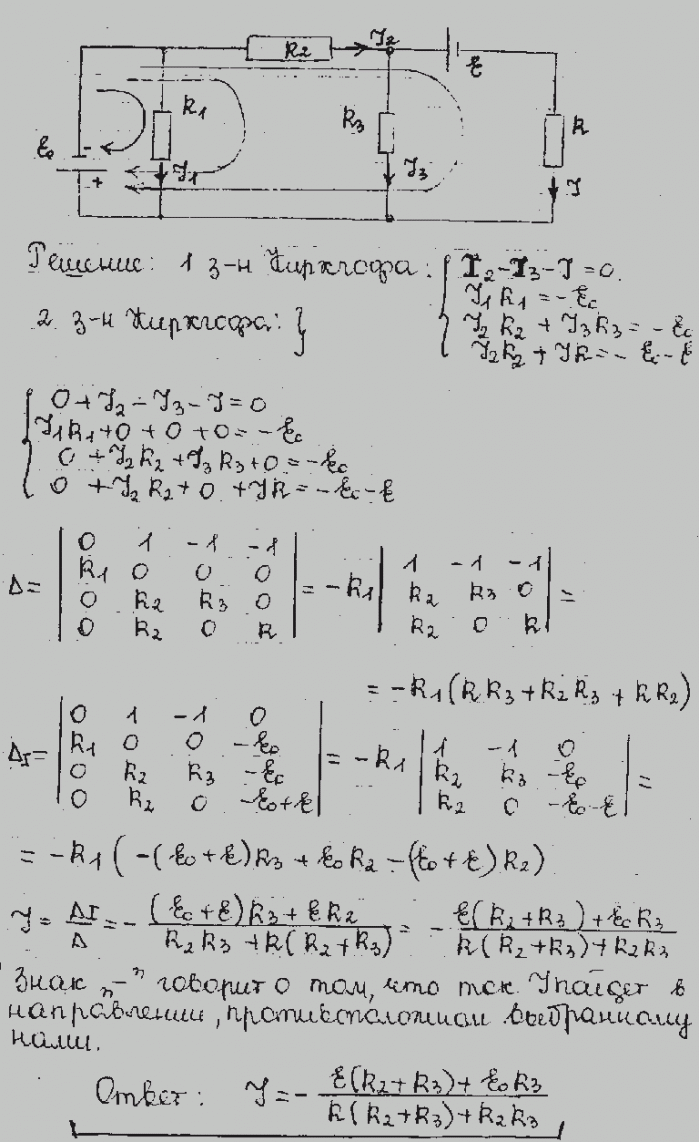 R2 J2 ℰ
R1 R3 R
ℰ0 - + J1 J3 J
Решение: 1 з-н Кирхгофа: { I2-I3-J=0.
J1R1=-ℰ0
2 з-н Кирхгофа: } J2R2+J3R3=-ℰ0
J2R2+JR=-ℰ0-ℰ
{ 0+J2-J3-J=0
J1R1+0+0+0=-ℰ0
0+J2R2+J3R3+0=-ℰ0
0+J2R2+0+JR=-ℰ0-ℰ
Δ= | 0 1 -1 -1 |
| R1 0 0 0 | = -R1 | 1 -1 -1 |
| 0 R2 R3 0 | | R2 R3 0 | =
| 0 R2 0 R | | R2 0 R |
= -R1(RR3+R2R3+RR2)
ΔI= | 0 1 -1 0 |
| R1 0 0 -ℰ0 | = -R1 | 1 -1 0 |
| 0 R2 R3 -ℰ0 | | R2 R3 -ℰ0 | =
| 0 R2 0 -ℰ0+ℰ | | R2 0 -ℰ0-ℰ |
= -R1(-(ℰ0+ℰ)R3+ℰ0R2-(ℰ0+ℰ)R2)
J = ΔI/Δ = - ((ℰ0+ℰ)R3+ℰR2)/(R2R3+R(R2+R3)) = - (ℰ(R2+R3)+ℰ0R3)/(R(R2+R3)+R2R3)
Знак „-" говорит о том, что ток J пойдет в
направлении, противоположном выбранному
нами.
Ответ: J = - (ℰ(R2+R3)+ℰ0R3)/(R(R2+R3)+R2R3)